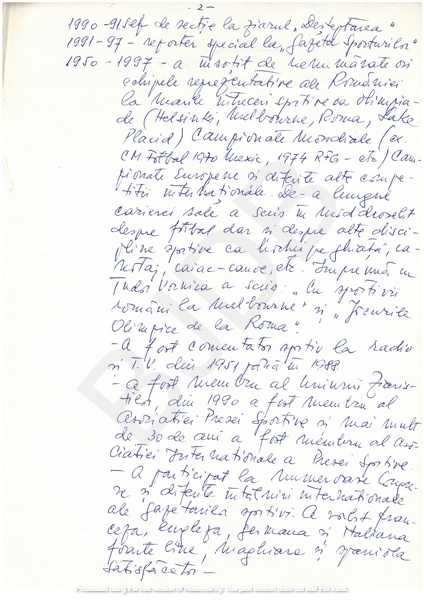 -2-
1990-91 șef de secție la ziarul „Deșteptarea"
1991-97 - reporter special la „Gazeta Sporturilor"
1950-1997 - a însoțit de nenumărate ori
echipele reprezentative ale României
la marile întreceri sportive ca Olimpia-
de (Helsinki, Melbourne, Roma, Lake
Placid) Campionate Mondiale (ex.
CM Fotbal 1970 Mexic, 1974 RFG - etc) Cam-
pionate Europene și diferite alte compe-
tiții internaționale. De-a lungul
carierei sale a scris în mod deosebit
despre fotbal dar și despre alte disci-
pline sportive ca hochei pe ghiață, ca-
notaj, caiac-canoe, etc. Împreună cu
Tudor Vornicu a scris: „Cu sportivii
români la Melbourne" și „Jocurile
Olimpice de la Roma".
- A fost comentator sportiv la radio
și T.V. din 1951 până în 1988.
- A fost membru al Uniunii Ziariș-
tilor, din 1990 a fost membru al
Asociației Presei Sportive și mai mult
de 30 de ani a fost membru al Aso-
ciației Internationale a Presei Sportive.
- A participat la numeroase Congre-
se și diferite întâlniri internationale
ale gazetarilor sportivi. A vorbit fran-
ceza, engleza, germana și italiana
foarte bine, maghiara și spaniola
satisfăcător -